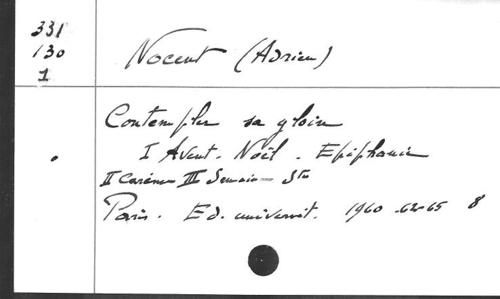 331
130
1
Nocent (Adrien)
Contempler sa gloire
I Avent. Noël. Epiphanie
II Carême III Semaine Ste
Paris. Ed. universit. 1960-62-65 8